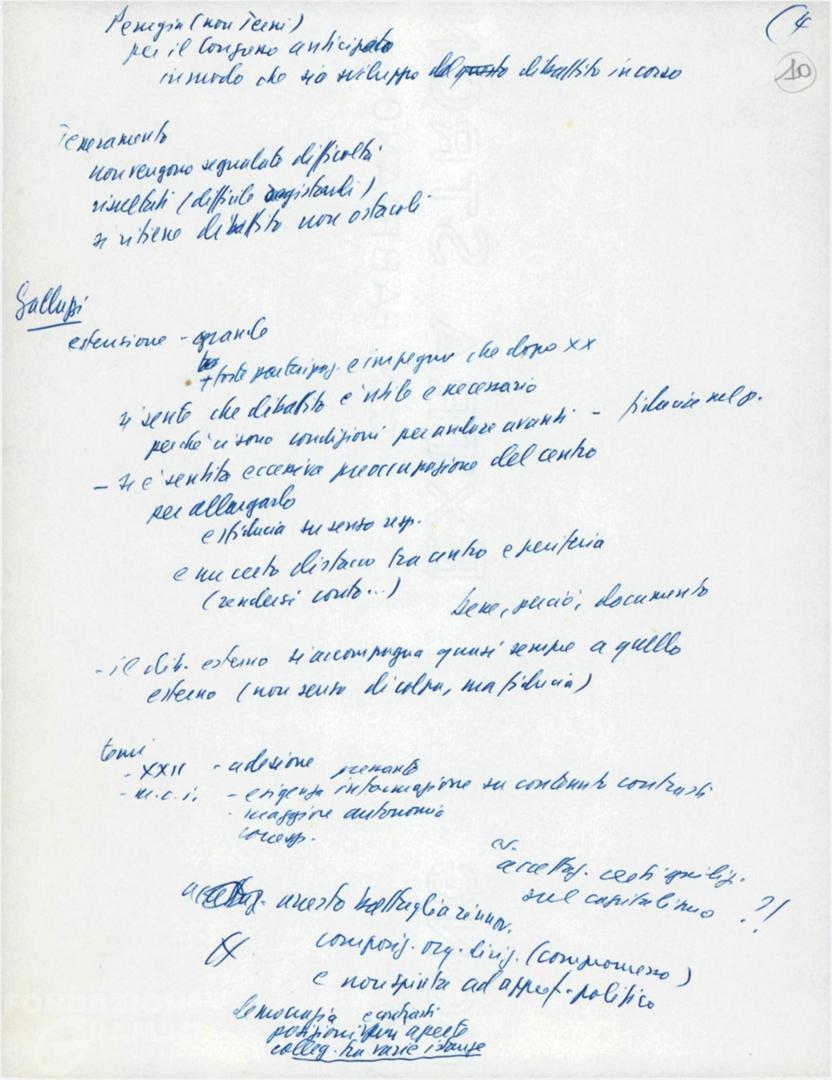 (4
10
Perugia (non Terni)
per il Congresso anticipato
in modo che sia sviluppo del questo dibattito in corso
Tesseramento
non vengono segnalate difficoltà
risultati (difficile registrarli)
si ritiene dibattito non ostacoli
Galluzzi
estensione - grande
+ forte partecipaz. e impegno che dopo XX
si sente che dibattito è utile e necessario
perché ci sono condizioni per andare avanti - fiducia nel p.
- si è sentita eccessiva preoccupazione del centro
per allargarlo
e sfiducia su senso resp.
e un certo distacco tra centro e periferia
(rendersi conto...)
bene, perciò, documento
- il dib. esterno si accompagna quasi sempre a quello
esterno (non senso di colpa, ma fiducia)
temi
- XXII - adesione
- m.c.i. - esigenza informazione su contenuto contrasti
- maggiore autonomia
accettaz. certi giudiz.
sul capitalismo ?!
accettaz. questo battaglia rinnov.
composiz. org. dirig. (compromesso)
e non spinta ad approf. politico
democrazia contrasti
posizioni aperte
colleg. tra varie istanze
FONDAZIONE